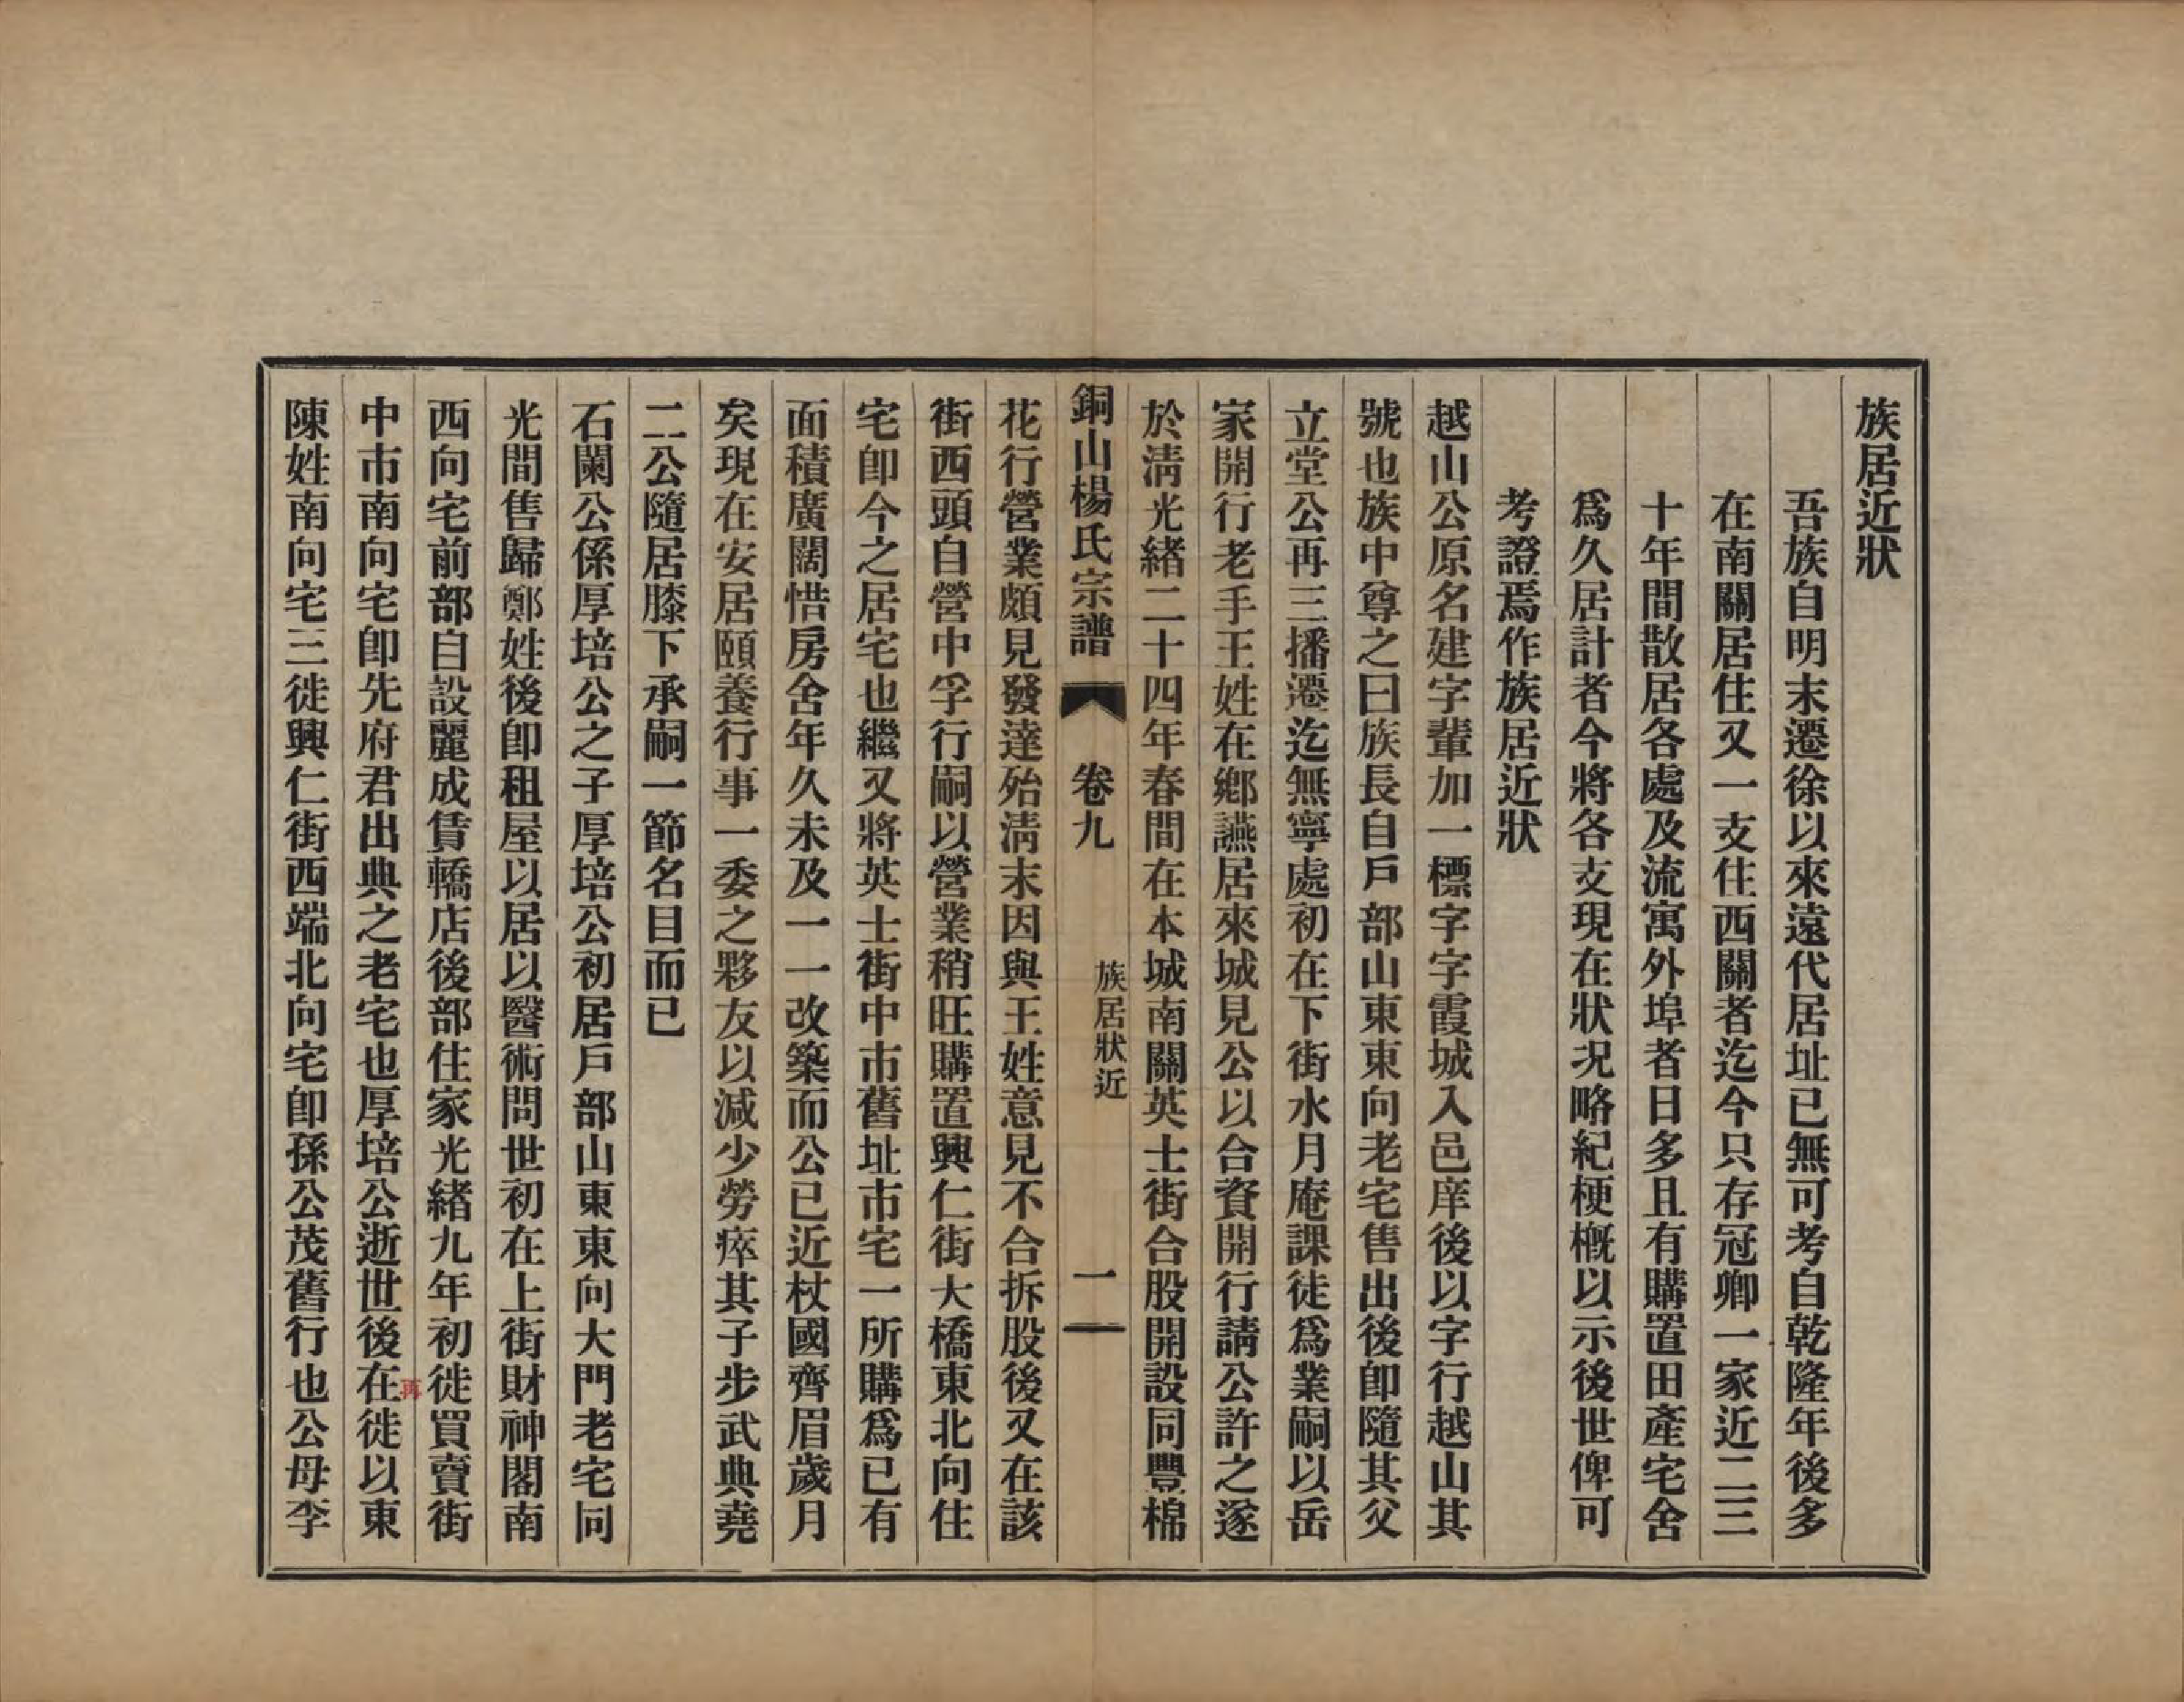 族居近狀
吾族自明末遷徐以來遠代居址已無可考自乾隆年後多
在南關居住又一支住西關者迄今只存冠卿一家近二三
十年間散居各處及流寓外埠者日多且有購置田產宅舍
爲久居計者今將各支現在狀况略紀梗概以示後世俾可
考證焉作族居近狀
越山公原名建字輩加一標字字霞城入邑庠後以字行越山其
號也族中尊之曰族長自戶部山東東向老宅售出後卽隨其父
立堂公再三播遷迄無寧處初在下街水月庵課徒爲業嗣以岳
家開行老手王姓在鄉讌居來城見公以合資開行請公許之遂
於淸光緖二十四年春間在本城南關英士街合股開設同豐棉
銅山楊氏宗譜 卷九 族居狀近 一
花行營業頗見發達殆淸末因與王姓意見不合拆股後又在該
街西頭自營中孚行嗣以營業稍旺購置興仁街大橋東北向住
宅卽今之居宅也繼又將英士街中市舊址市宅一所購爲已有
面積廣闊惜房舍年久未及一一改築而公已近杖國齊眉歲月
矣現在安居頤養行事一委之夥友以減少勞瘁其子步武典堯
二公隨居膝下承嗣一節名目而已
石闌公係厚培公之子厚培公初居戶部山東東向大門老宅同
光間售歸鄭姓後卽租屋以居以醫術問世初在上街財神閣南
西向宅前部自設麗成賃轎店後部住家光緖九年初徙買賣街
中市南向宅卽先府君出典之老宅也厚培公逝世後在再徙以東
陳姓南向宅三徙興仁街西端北向宅卽孫公茂舊行也公母李